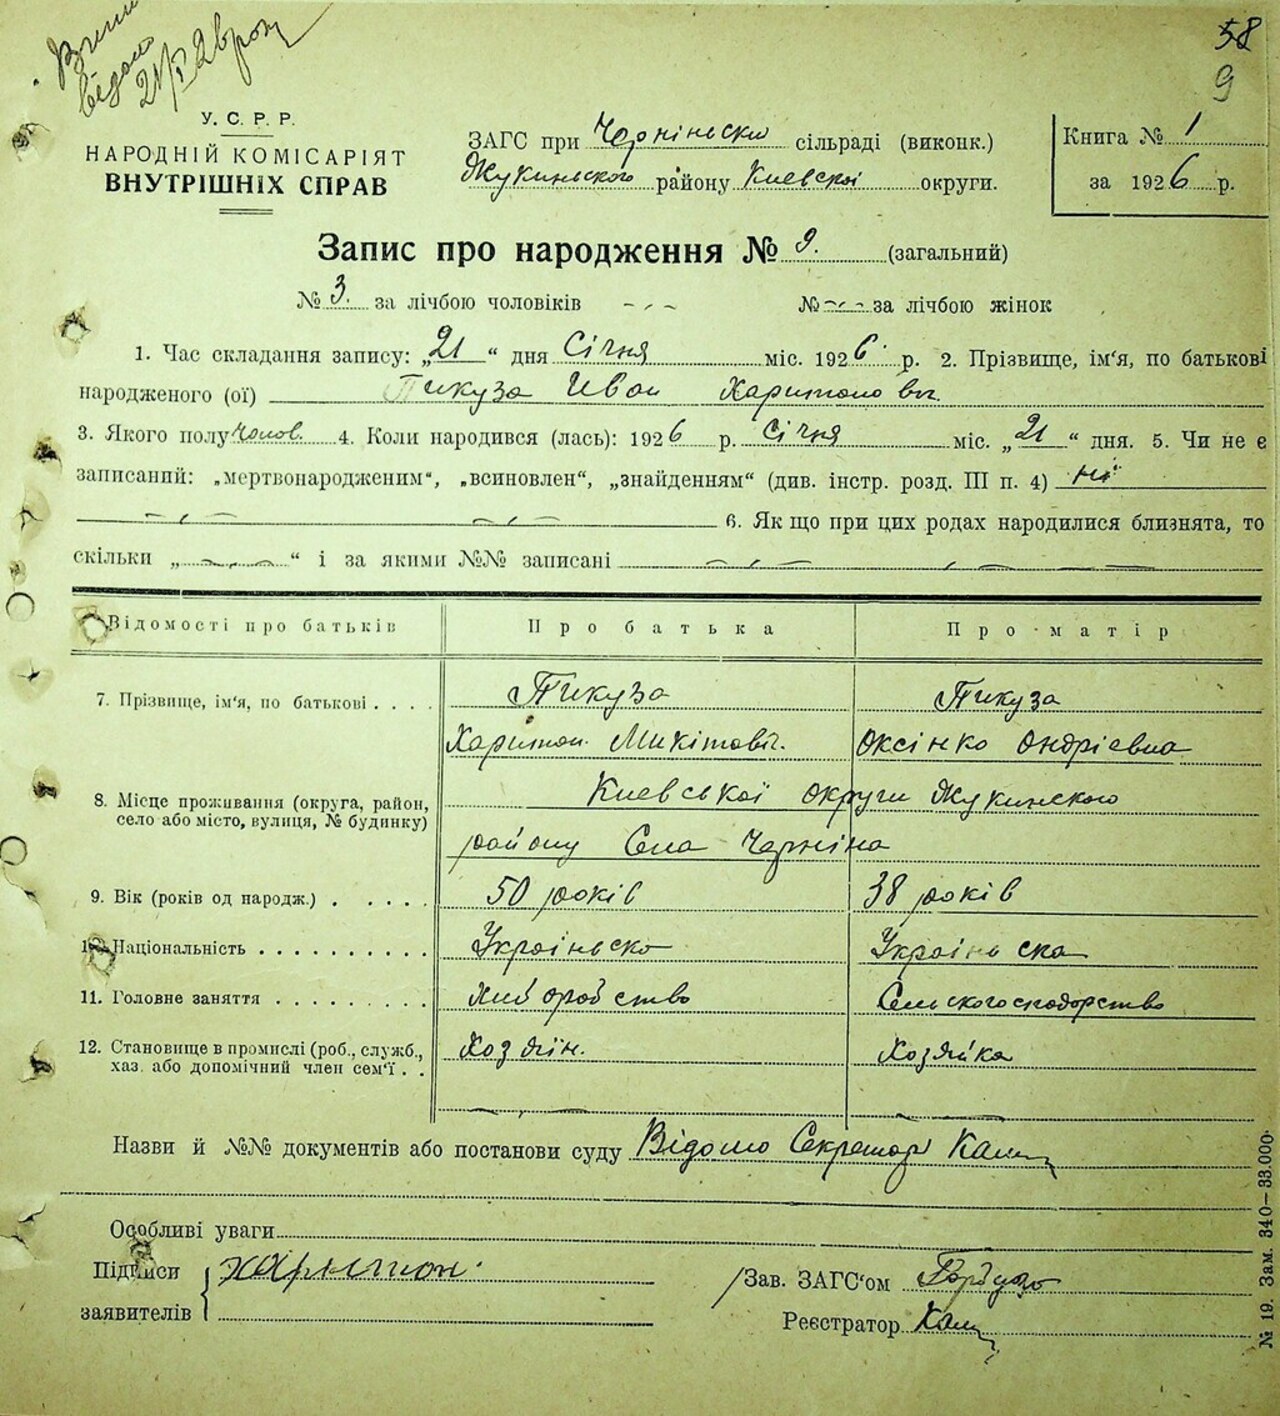 58
9
У. С. Р. Р.
НАРОДНІЙ КОМІСАРІЯТ
ВНУТРІШНІХ СПРАВ
ЗАГС при Чорніньски сільраді (виконк.)
Жукиньского району Киевскої округи.
Книга № 1
за 1926 р.
Запис про народження № 9. (загальний)
№ 3. за лічбою чоловіків № за лічбою жінок
1. Час складання запису: „21“ дня Січня міс. 1926 р. 2. Прізвище, ім'я, по батькові
народженого (ої) Пикуза Иван Харитонович.
3. Якого полу чолов. 4. Коли народився (лась): 1926 р. Січня міс. „21“ дня. 5. Чи не є
записаний: „мертвонародженим“, „всиновлен“, „знайденням“ (див. інстр. розд. III п. 4) ні
6. Як що при цих родах народилися близнята, то
скільки „ “ і за якими №№ записані
Відомості про батьків Про батька Про матір
7. Прізвище, ім'я, по батькові . . . . Пикуза Пикуза
Харитон Микітович. Оксінко Ондріевна
8. Місце проживання (округа, район, Киевської округи Жукинского
село або місто, вулиця, № будинку) району Села Черніна
9. Вік (років од народж.) . . . . . 50 років 38 років
10. Національність . . . . . . . . . . Україньско Україньска
11. Головне заняття . . . . . . . . . Хлиборобство Сельськогосподорство
12. Становище в промислі (роб., службо., Хозяїн. Хозяйка
хаз. або допомічний член сем'ї . .
Назви й №№ документів або постанови суду Відомо Секретар
Особливі уваги
Підписи Харитон.
заявителів
Зав. ЗАГС'ом
Реєстратор
№ 19. Зам. 340—33.000.